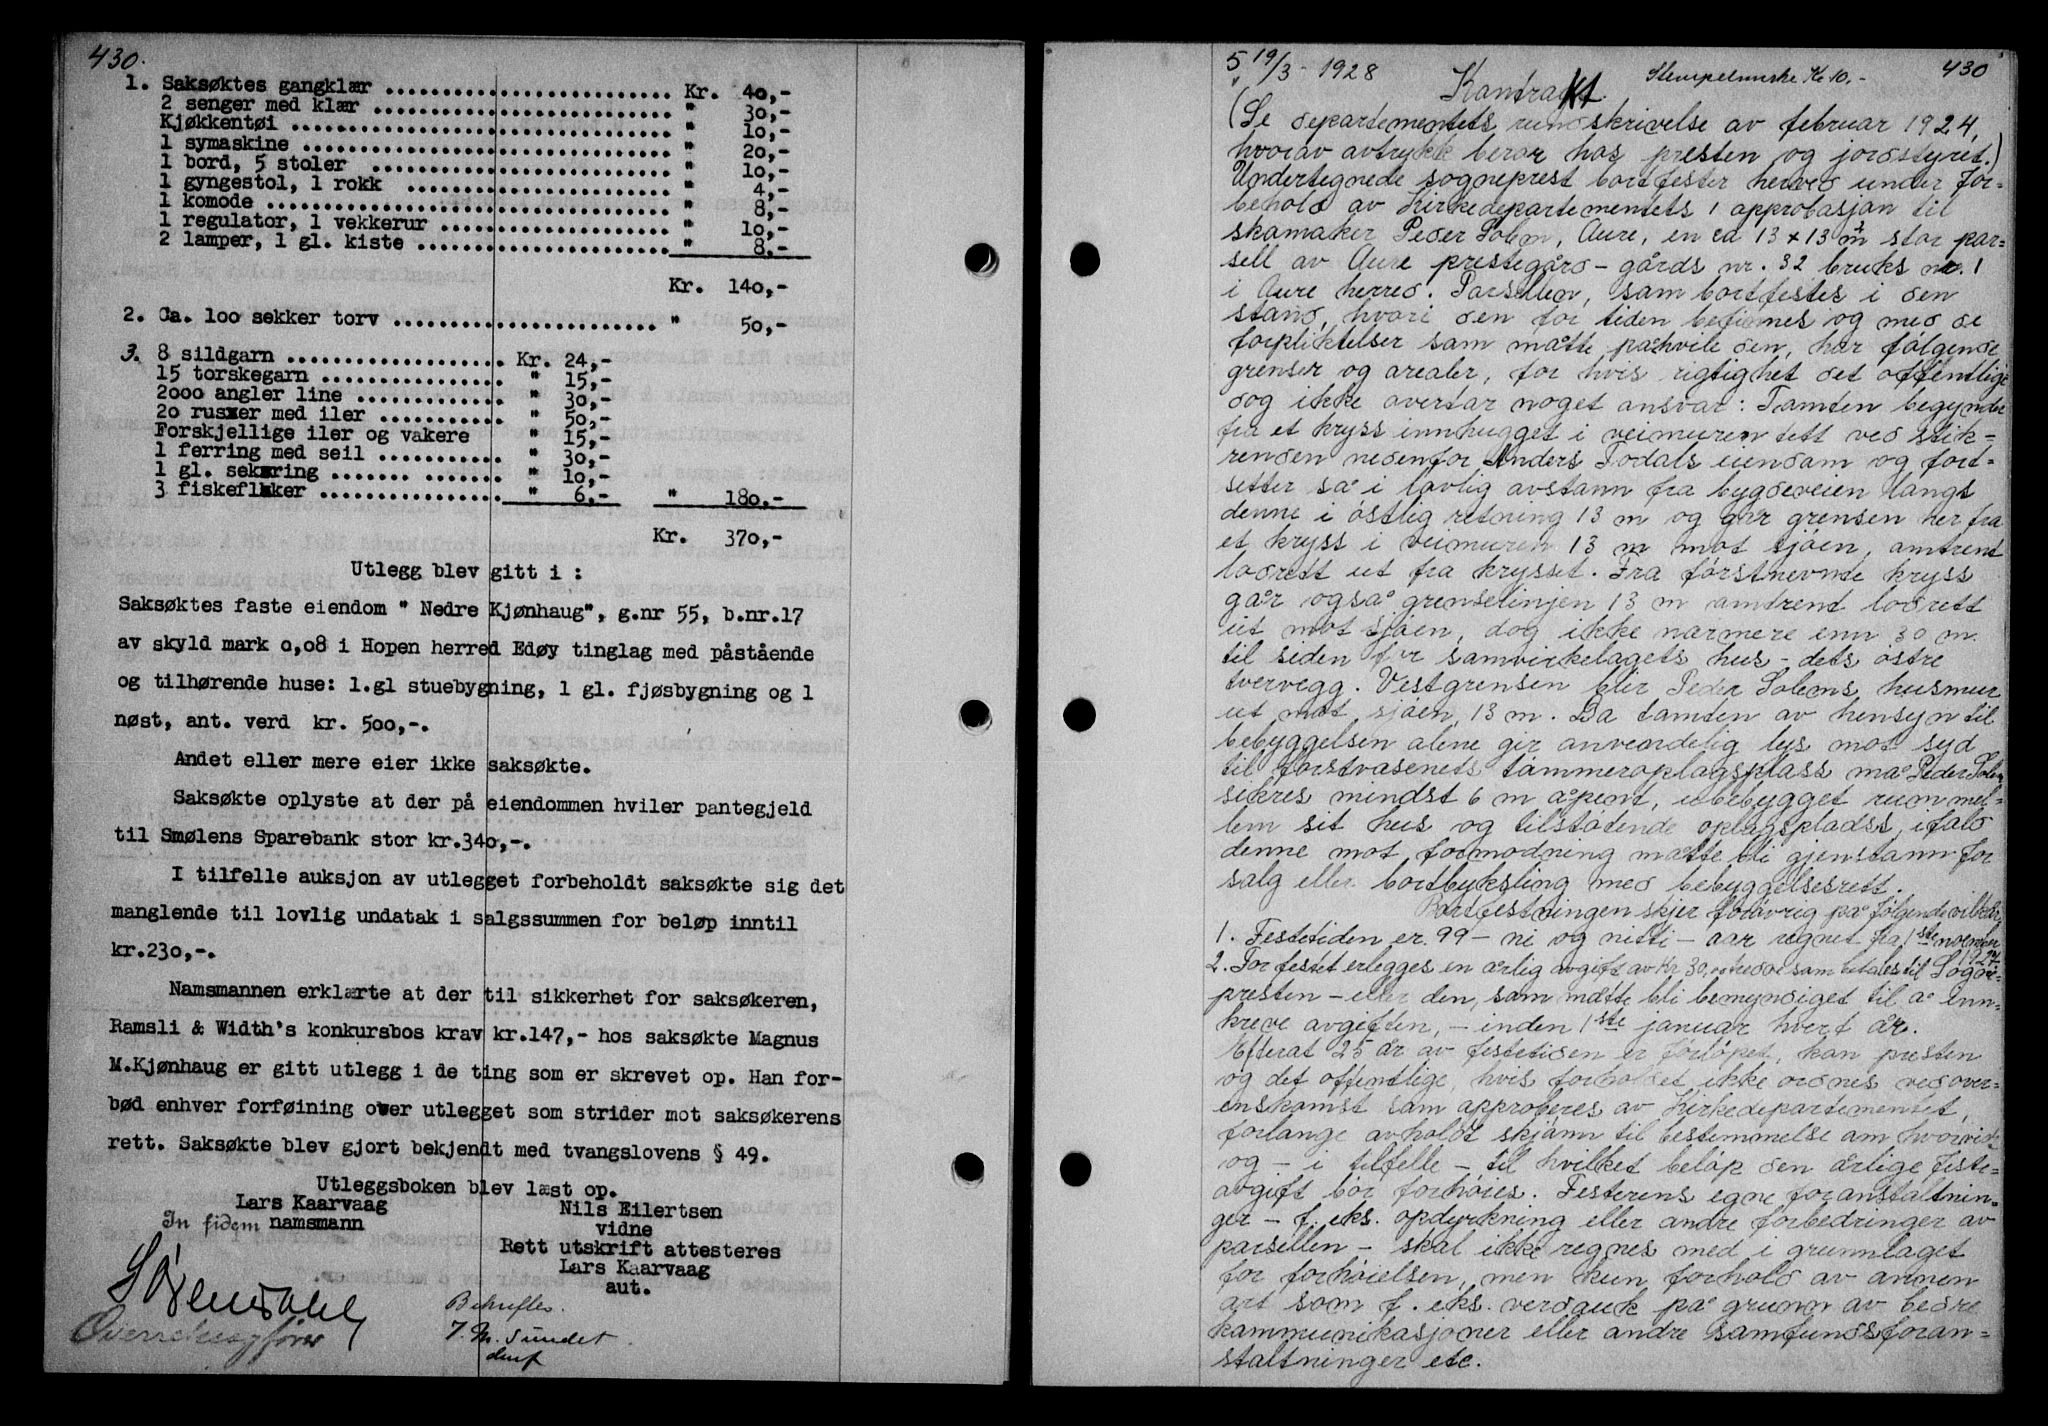 430.
1. Saksøktes gangklær ........................ Kr. 40,-
2 senger med klær ........................ " 30,-
Kjøkkentøi ........................ " 10,-
1 symaskine ........................ " 20,-
1 bord, 5 stoler ........................ " 10,-
1 gyngestol, 1 rokk ........................ " 4,-
1 komode ........................ " 8,-
1 regulator, 1 vekkerur ........................ " 10,-
2 lamper, 1 gl. kiste ........................ " 8,-
Kr. 140,-
2. Ca. 100 sekker torv ........................ " 50,-
3. 8 sildgarn ........................ Kr. 24,-
15 torskegarn ........................ " 15,-
2000 angler line ........................ " 30,-
20 ruser med iler ........................ " 50,-
Forskjellige iler og vakere " 15,-
1 ferring med seil ........................ " 30,-
1 gl. sekæring ........................ " 10,-
3 fiskeflaker ........................ " 6,- " 180,-
Kr. 370,-
Utlegg blev gitt i :
Saksøktes faste eiendom " Nedre Kjønhaug", g.nr 55, b.nr.17
av skyld mark 0,08 i Hopen herred Edøy tinglag med påstående
og tilhørende huse: 1.gl stuebygning, 1 gl. fjøsbygning og 1
nøst, ant. verd kr. 500,-.
Andet eller mere eier ikke saksøkte.
Saksøkte oplyste at der på eiendommen hviler pantegjeld
til Smølens Sparebank stor kr.340,-.
I tilfelle auksjon av utlegget forbeholdt saksøkte sig det
manglende til lovlig undatak i salgssummen for beløp inntil
kr.230,-.
Namsmannen erklærte at der til sikkerhet for saksøkeren,
Ramsli & Width's konkursbos krav kr.147,- hos saksøkte Magnus
M.Kjønhaug er gitt utlegg i de ting som er skrevet op. Han for-
bød enhver forføining over utlegget som strider mot saksøkerens
rett. Saksøkte blev gjort bekjendt med tvangslovens § 49.
Utleggsboken blev læst op.
Lars Kaarvaag
namsmann
Nils Eilertsen
vidne
In fidem
Rett utskrift attesteres
Lars Kaarvaag
aut.
Overrettssagfører
Bekreftes.
J. N. Sundet
5 19/3 - 1928 Stempelmerke Kr 10.- 430
Kontrakt.
(Se departementets rundskrivelse av februar 1924,
hvorav avtrykk beror hos presten og jordstyret.)
Undertegnede sogneprest bortfester herved under for-
behold av Kirkedepartementets approbasjon til
skomaker Peder Solem, Aure, en ca 13 x 13 m² stor par-
sell av Aure prestegård - gårds nr. 32 bruks nr. 1
i Aure herred. Parsellen, som bortfestes i den
stand, hvori den for tiden befinnes og med de
forpliktelser som måtte påhvile den, har følgende
grenser og arealer, for hvis rigtighet det offentlige
dog ikke overtar noget ansvar: Tomten begynder
fra et kryss innhugget i veimuren tett ved stik-
renden nedenfor Anders Todals eiendom og fort-
setter så i lovlig avstann fra bygdeveien langs
denne i østlig retning 13 m og går grensen her fra
et kryss i veimuren 13 m mot sjøen, omtrent
lodrett ut fra krysset. Fra førstnevnte kryss
går også grenselinjen 13 m omtrent lodrett
ut mot sjøen, dog ikke nærmere enn 30 m
til siden for samvirkelagets hus - dets østre
tvervegg. Vestgrensen blir Peder Solems husmur
ut mot sjøen, 13 m. Da tomten av hensyn til
bebyggelsen alene gir anvendelig lys mot syd
til forstvæsenets tømmeroplagsplass må Peder Solem
sikres mindst 6 m åpent, ubebygget rum mel-
lem sit hus og tilstødende oplagsplads, ifald
denne mot formodning måtte bli gjenstann for
salg eller bortbyksling med bebyggelsesrett.
Bortfestningen skjer forøvrig på følgende vilkår:
1. Festetiden er 99 - ni og nitti - aar regnet fra 1ste november 1927.
2. For festet erlegges en årlig avgift av Kr 30, som betales til Sogne-
presten - eller den, som måtte bli bemyndiget til å inn-
kreve avgiften, - inden 1ste januar hvert år.
Efterat 25 år av festetiden er forløpet, kan presten
og det offentlige, hvis forholdet ikke ordnes ved over-
enskomst som approberes av Kirkedepartementet,
forlange avholdt skjønn til bestemmelse om hvorvidt
og - i tilfelle - til hvilket beløp den årlige feste-
avgift bør forhøies. Festerens egne foranstaltnin-
ger - f. eks. opdyrkning eller andre forbedringer av
parsellen - skal ikke regnes med i grunnlaget
for forhøielsen, men kun forhold av annen
art som f. eks. verdauk på grunn av bedre
kommunikasjoner eller andre samfundsforan-
staltninger etc.